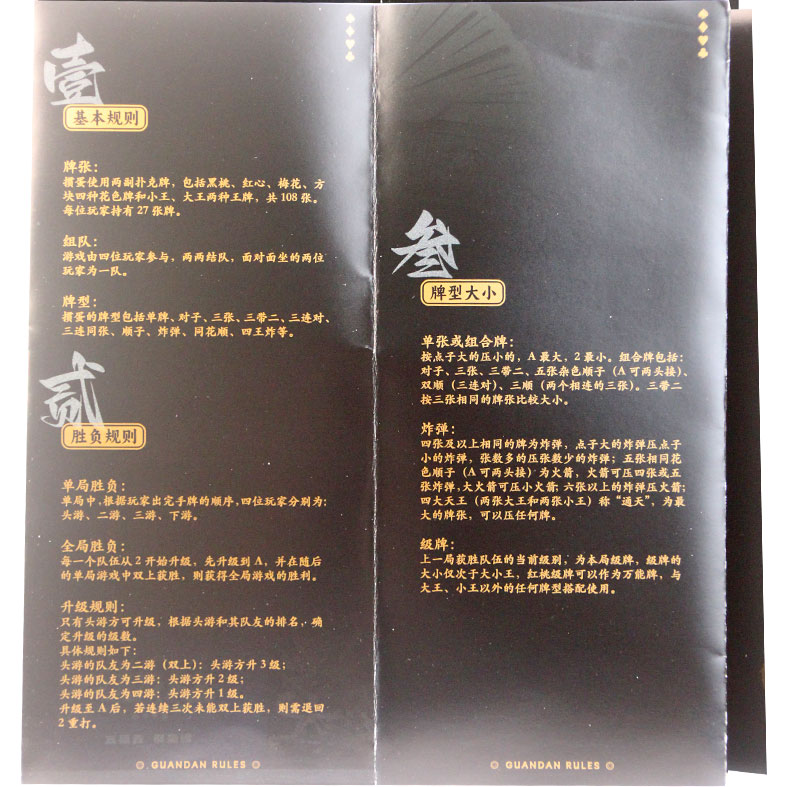 壹
基本规则
牌张:
掼蛋使用两副扑克牌,包括黑桃、红心、梅花、方
块四种花色牌和小王、大王两种王牌,共 108 张。
每位玩家持有 27 张牌。
组队:
游戏由四位玩家参与,两两结队,面对面坐的两位
玩家为一队。
牌型:
掼蛋的牌型包括单牌、对子、三张、三带二、三连对、
三连同张、顺子、炸弹、同花顺、四王炸等。
贰
胜负规则
单局胜负:
单局中,根据玩家出完手牌的顺序,四位玩家分别为:
头游、二游、三游、下游。
全局胜负:
每一个队伍从 2 开始升级,先升级到 A,并在随后
的单局游戏中双上获胜,则获得全局游戏的胜利。
升级规则:
只有头游方可升级,根据头游和其队友的排名,确
定升级的级数。
具体规则如下:
头游的队友为二游(双上):头游方升 3 级;
头游的队友为三游:头游方升 2 级;
头游的队友为四游:头游方升 1 级。
升级至 A 后,若连续三次未能双上获胜,则需退回
2 重打。
GUANDAN RULES
叁
牌型大小
单张或组合牌:
按点子大的压小的,A 最大,2 最小。组合牌包括:
对子、三张、三带二、五张杂色顺子(A 可两头接)、
双顺(三连对)、三顺(两个相连的三张)。三带二
按三张相同的牌张比较大小。
炸弹:
四张及以上相同的牌为炸弹,点子大的炸弹压点子
小的炸弹,张数多的压张数少的炸弹;五张相同花
色顺子(A 可两头接)为火箭,火箭可压四张或五
张炸弹,大火箭可压小火箭;六张以上的炸弹压火箭;
四大天王(两张大王和两张小王)称“通天”,为最
大的牌张,可以压任何牌。
级牌:
上一局获胜队伍的当前级别,为本局级牌,级牌的
大小仅次于大小王,红桃级牌可以作为万能牌,与
大王、小王以外的任何牌型搭配使用。
GUANDAN RULES